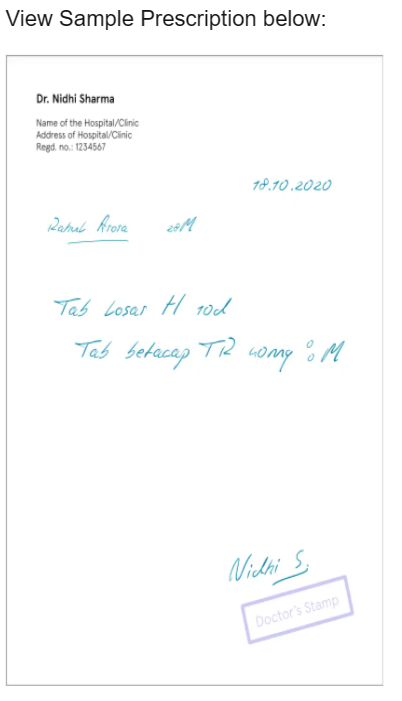 View Sample Prescription below:
Dr. Nidhi Sharma
Name of the Hospital/Clinic
Address of Hospital/Clinic
Regd. no.: 1234567
18.10.2020
Rahul Arora 28M
Tab Losar H 10d
Tab betacap TR 40mg % M
Nidhi S.
Doctor's Stamp